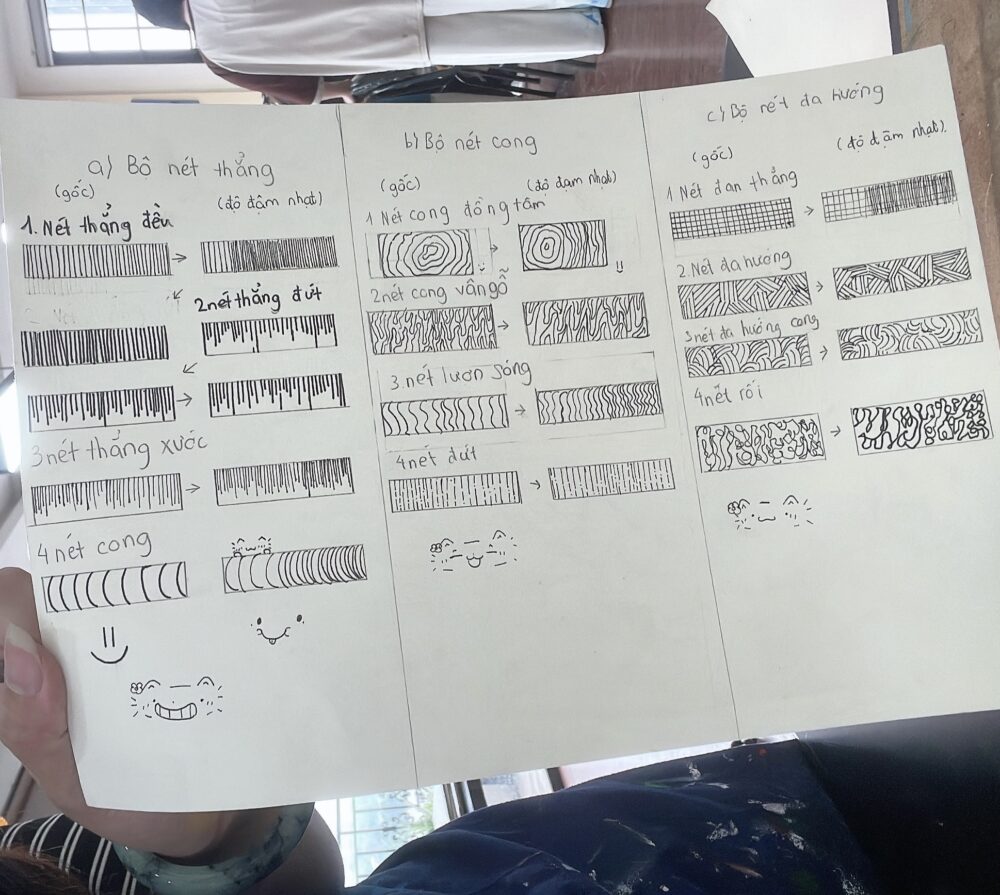 a) Bộ nét thẳng
(gốc)
(độ đậm nhạt)
1. Nét thẳng đều
2 nét thẳng đứt
3 nét thẳng xước
4 nét cong
b) Bộ nét cong
(gốc)
(độ đạm nhạt)
1 Nét cong đồng tâm
2 nét cong vân gỗ
3. nét lươn sóng
4 nét đứt
c) Bộ nét đa hướng
(gốc)
(độ đậm nhạt).
1 Nét đan thẳng
2. Nét đa hướng
3 nét đa hướng cong
4 nét rối